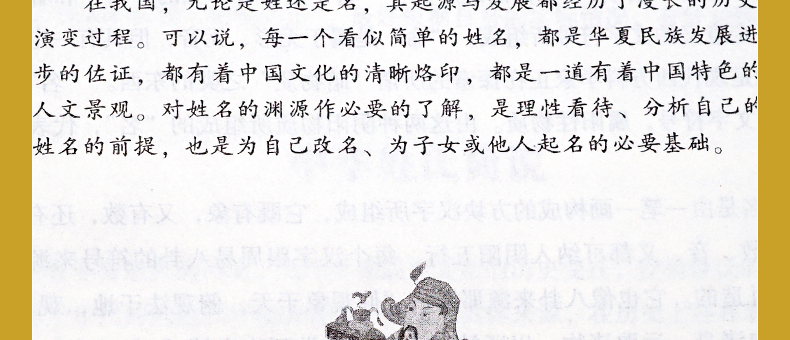 在我国，无论是姓还是名，其起源与发展都经历了漫长的历史
演变过程。可以说，每一个看似简单的姓名，都是华夏民族发展进
步的佐证，都有着中国文化的清晰烙印，都是一道有着中国特色的
人文景观。对姓名的渊源作必要的了解，是理性看待、分析自己的
姓名的前提，也是为自己改名、为子女或他人起名的必要基础。